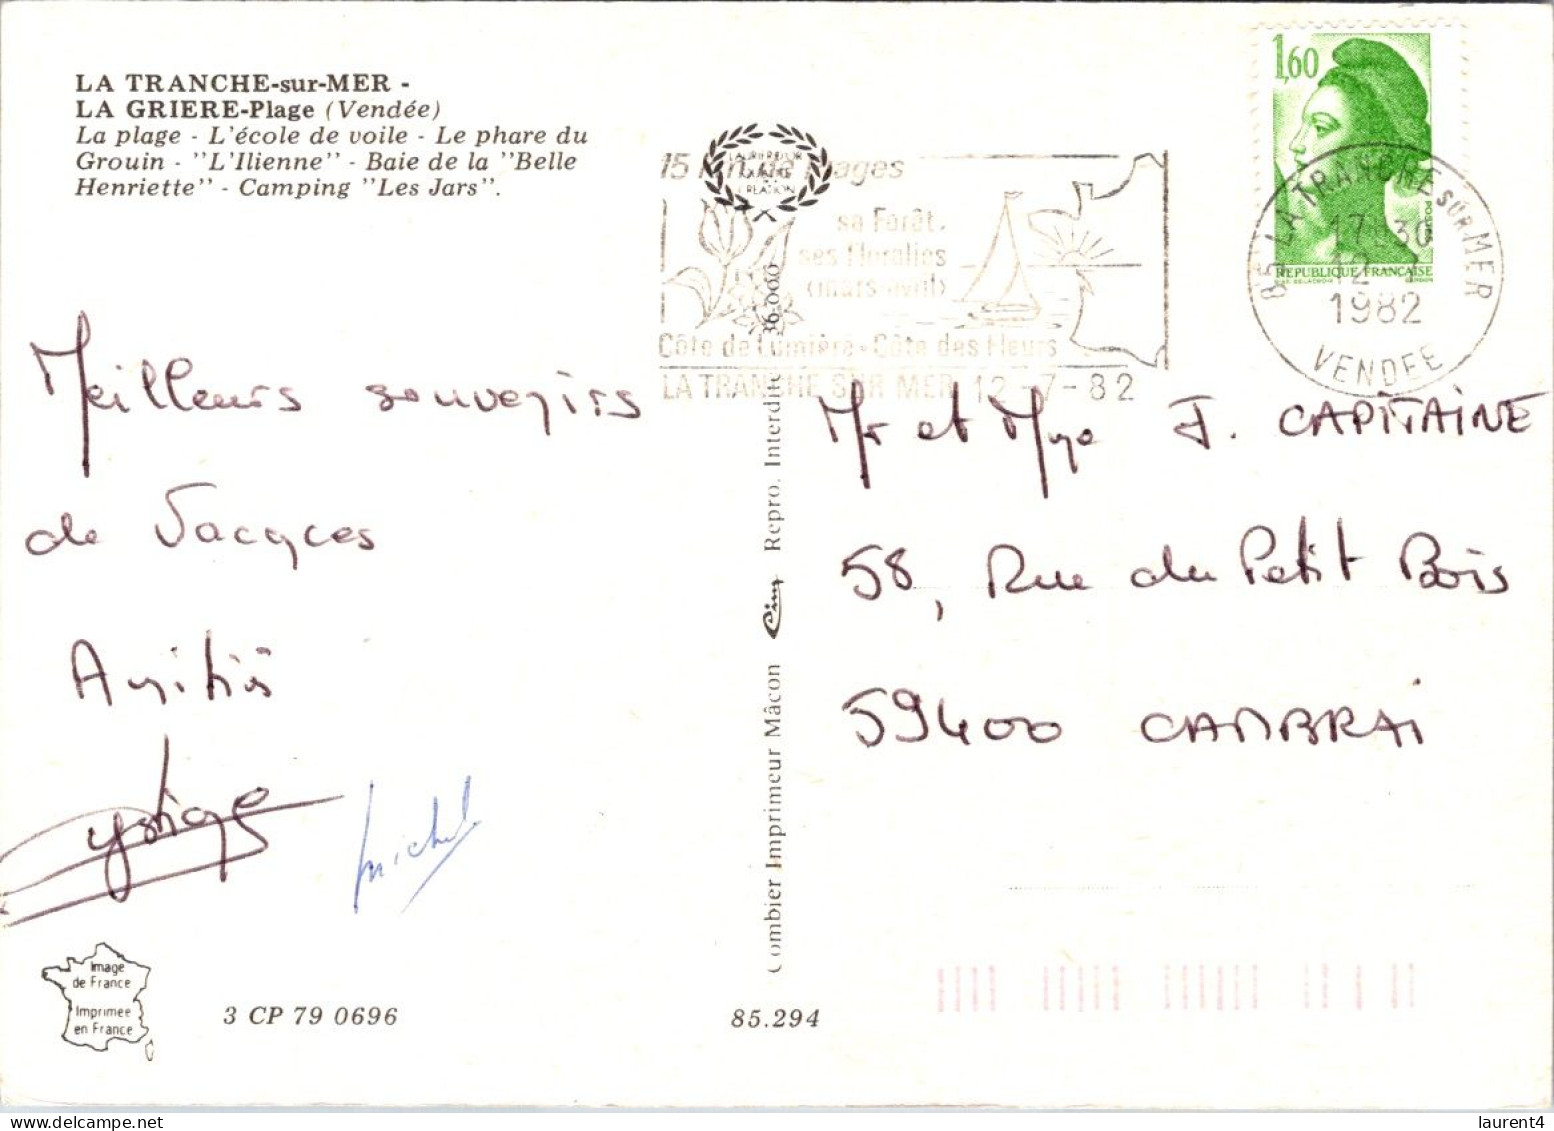 LA TRANCHE-sur-MER -
LA GRIERE-Plage (Vendée)
La plage - L'école de voile - Le phare du
Grouin - "L'Ilienne" - Baie de la "Belle
Henriette" - Camping "Les Jars".
1,60
RÉPUBLIQUE FRANÇAISE
85 LA TRANCHE SUR MER
17 30
12
1982
VENDEE
15 Km de Plages
sa Forêt.
ses Floralies
(mars-avril)
Côte de Lumière - Côte des Fleurs
LA TRANCHE SUR MER 12-7-82
CREATION
Meilleurs souvenirs
de Jacques
Amitiés
michel
Mr et Mme J. CAPITAINE
58, Rue du Petit Bois
59400 CAMBRAI
Combier Imprimeur Mâcon Cim Repro. Interdite 36.000
Image
de France
Imprimée
en France
3 CP 79 0696
85.294
laurent4